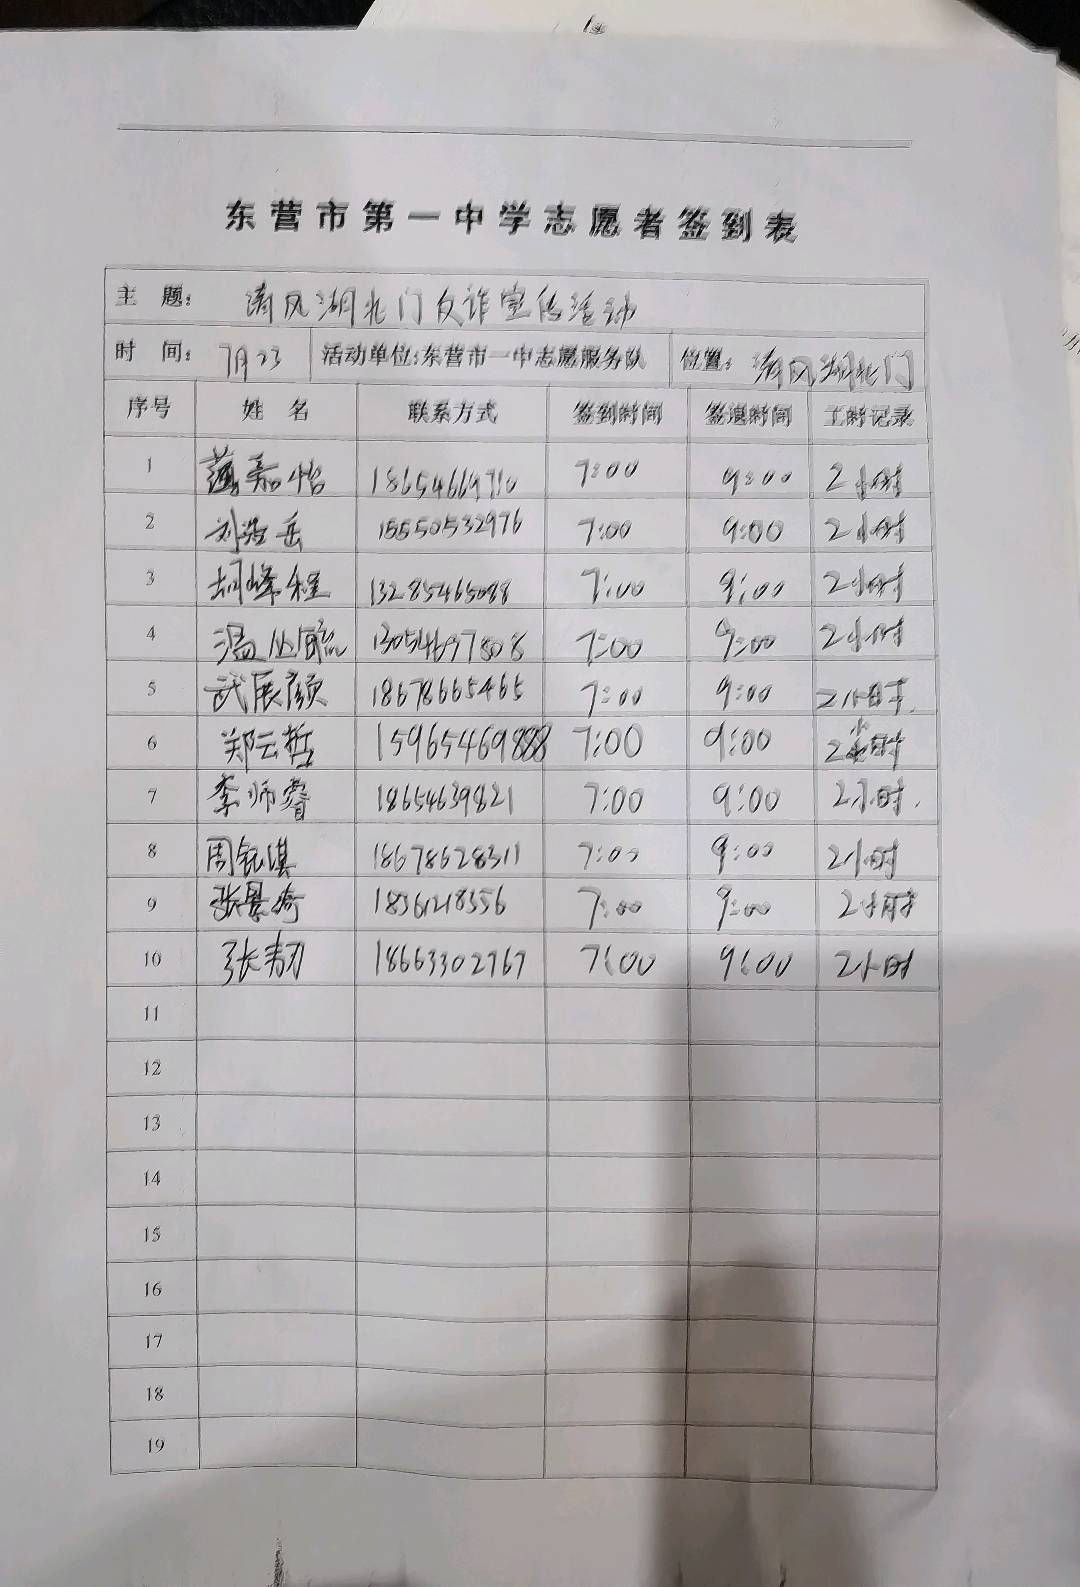 东营市第一中学志愿者签到表
主 题： 清风湖北门反诈宣传活动
时 间： 7月23 活动单位:东营市一中志愿服务队 位置： 清风湖北门
序号 姓 名 联系方式 签到时间 签退时间 工时记录
1 嘉怡 18654669710 7:00 9:00 2小时
2 刘浩岳 15550532976 7:00 9:00 2小时
3 胡峰程 7:00 9:00 2小时
4 温 13054697808 7:00 9:00 2小时
5 武展颜 18678665465 7:00 9:00 2小时.
6 郑云哲 15965469888 7:00 9:00 2小时
7 李师睿 18654639821 7:00 9:00 2小时.
8 周钰淇 18678628311 7:00 9:00 2小时
9 张景 18361218356 7:00 9:00 2小时
10 张韧 18663302767 7:00 9:00 2小时
11
12
13
14
15
16
17
18
19